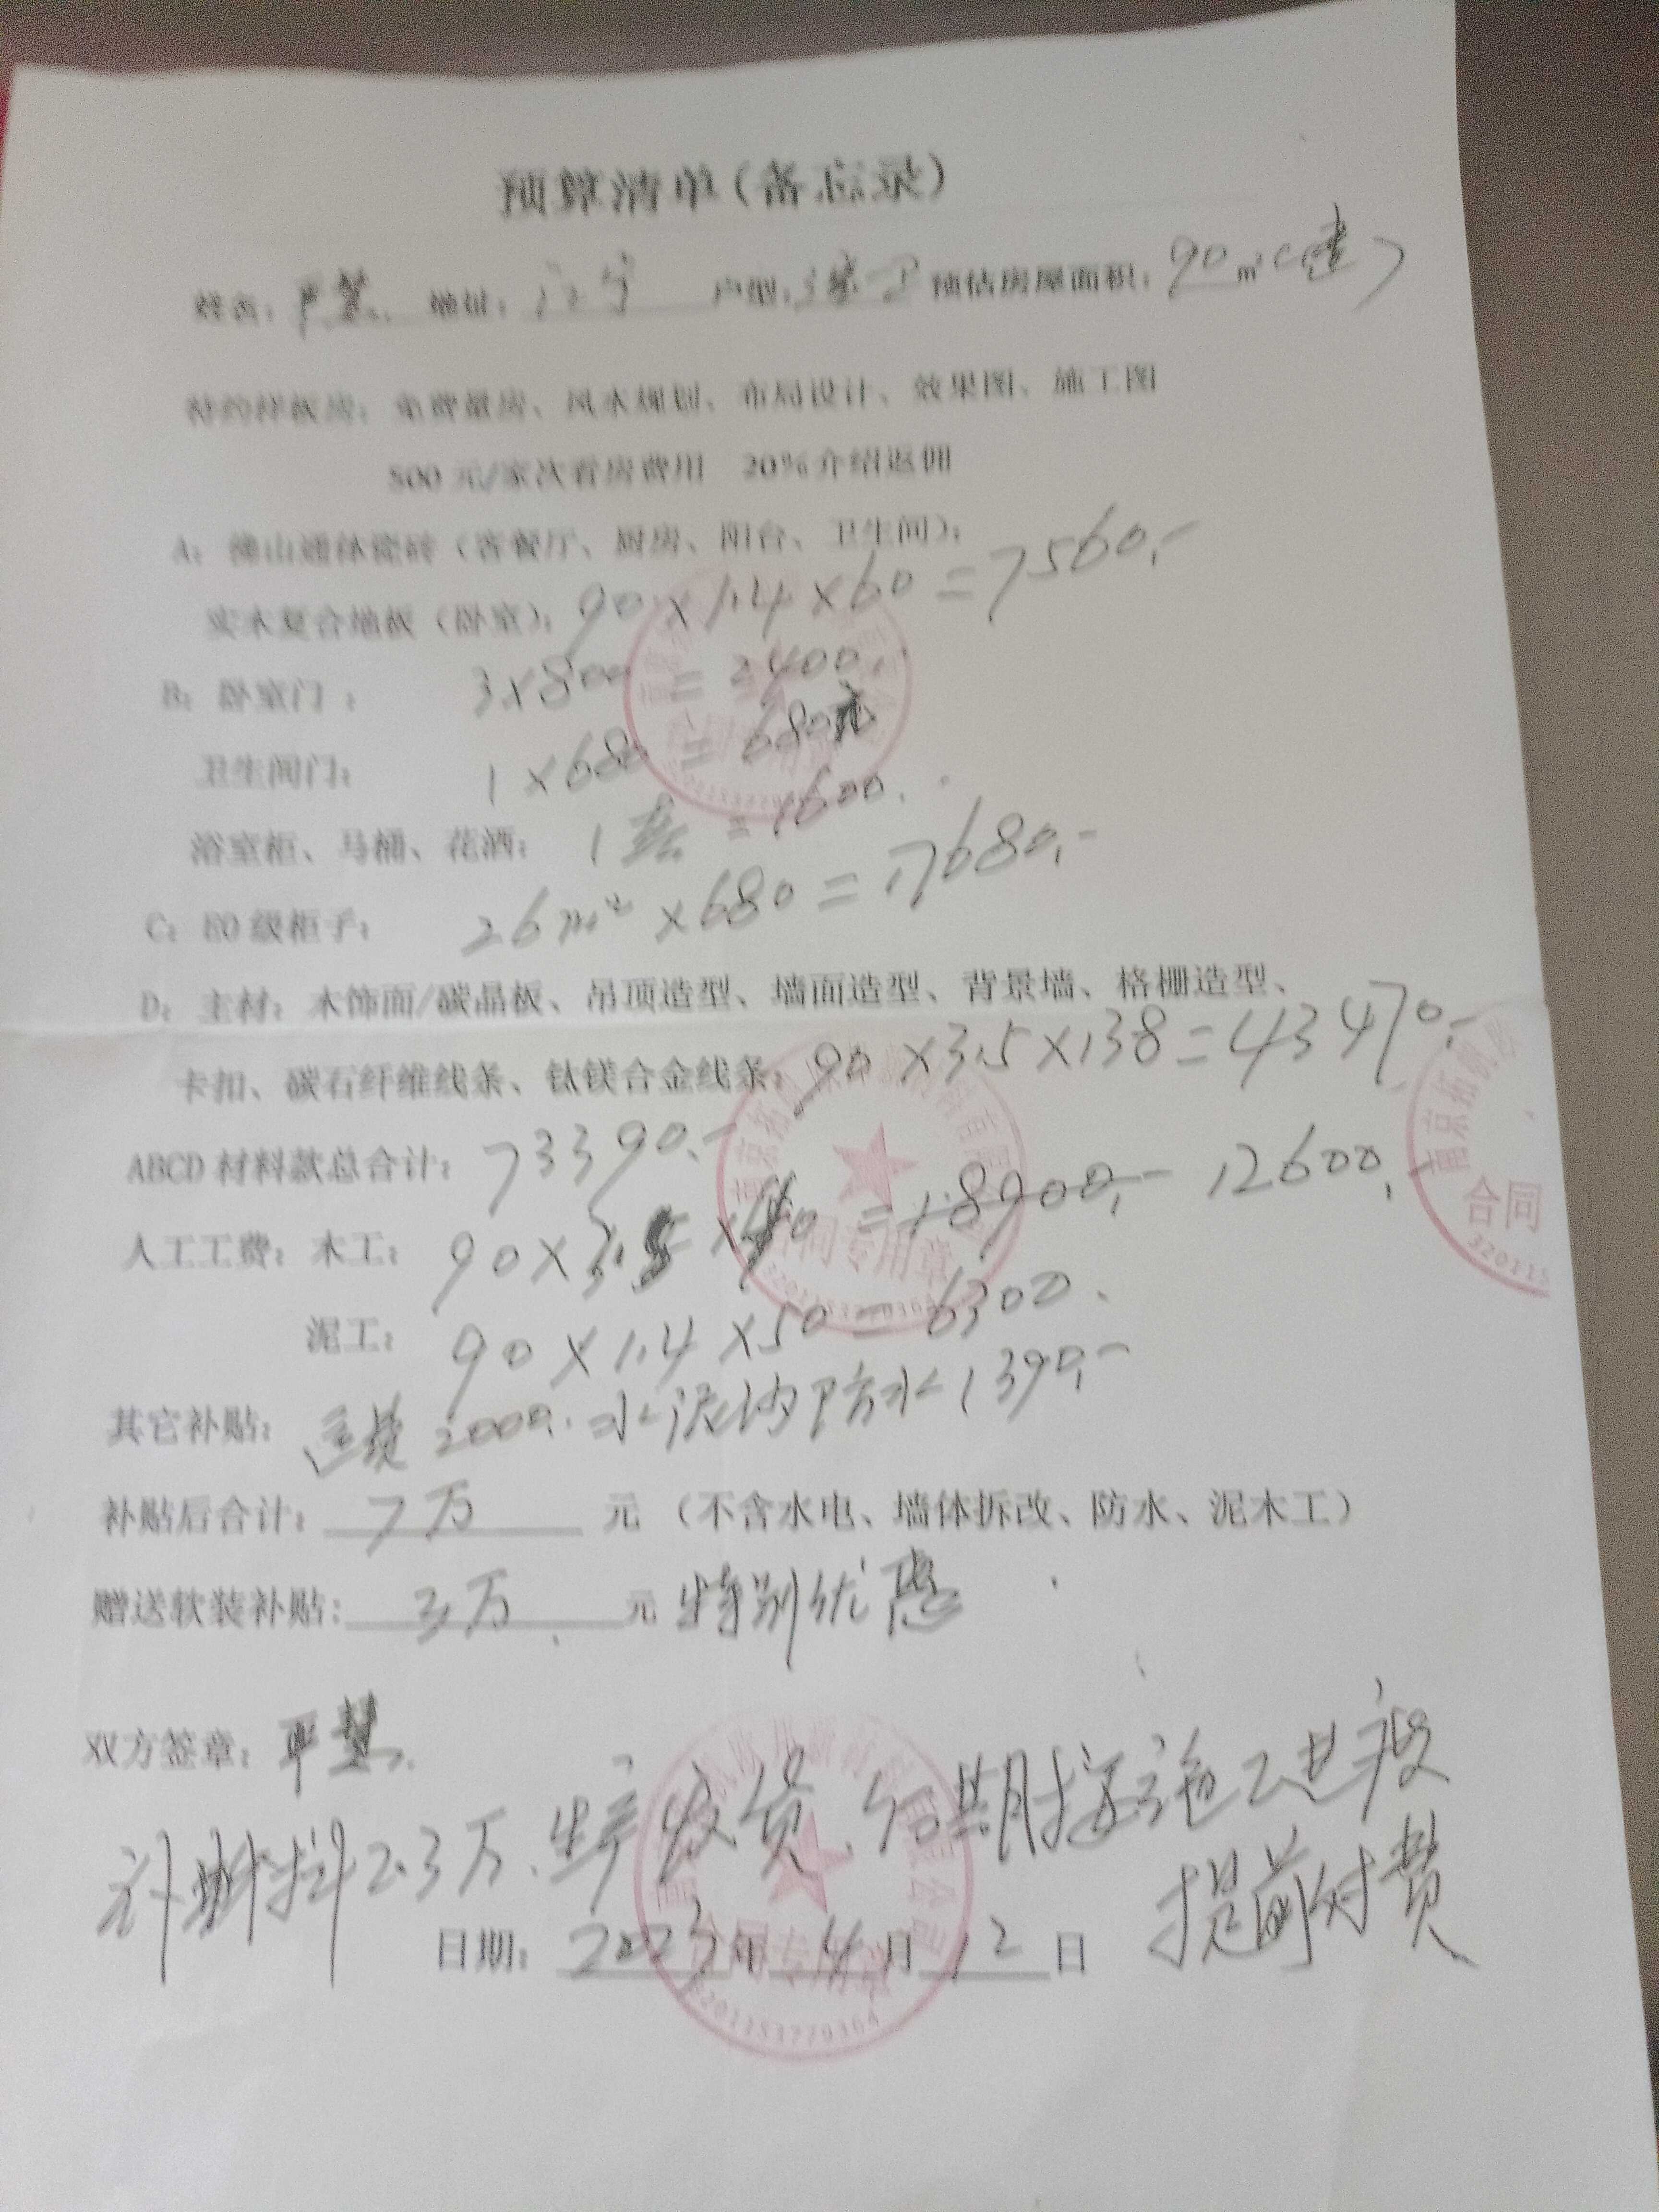 预算清单(备忘录)
姓名: 地址: 户型: 预估房屋面积: 90㎡(建)
特约样板房: 免费量房、风水规划、布局设计、效果图、施工图
500元/家次看房费用 20%介绍返佣
A: 佛山通体瓷砖(客餐厅、厨房、阳台、卫生间):
实木复合地板(卧室): 90×1.4×60=7560.-
B: 卧室门: 3×800=2400.
卫生间门: 1×680=680元
浴室柜、马桶、花洒: 1套=1600.
C: E0级柜子: 26m²×680=17680.-
D: 主材: 木饰面/碳晶板、吊顶造型、墙面造型、背景墙、格栅造型、
卡扣、碳石纤维线条、钛镁合金线条: 90×3.5×138=43470.-
ABCD材料款总合计: 73390.-
人工工费: 木工: 90×3.5×40=18900.- 12600.-
泥工: 90×1.4×50=6300.
其它补贴: 2000. 水泥沙防水1390.-
补贴后合计: 7万 元(不含水电、墙体拆改、防水、泥木工)
赠送软装补贴: 3万 元 特别优惠
双方签章:
材料2.3万 发货 后期按施工进度
提前付费
日期: 2023年4月12日
合同专用章
3201153770364